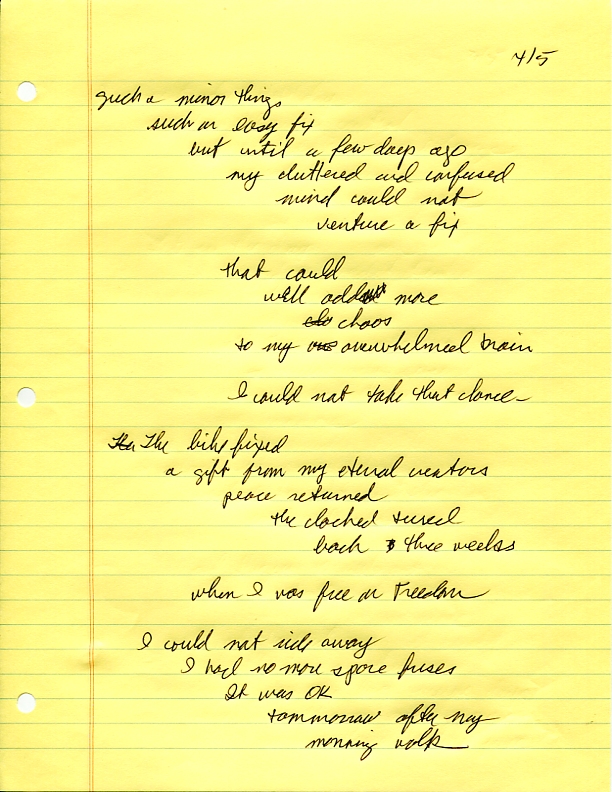 4/5
such a minor things
such an easy fix
but until a few days ago
my cluttered and confused
mind could not
venture a fix
that could
well add more
chaos
to my overwhelmed brain
I could not take that chance
The bike fixed
a gift from my eternal creators
peace returned
the clocked tured
back three weeks
when I was free on Freedom
I could not ride away
I had no more spare fuses
It was OK
tommorraw after my
morning walk